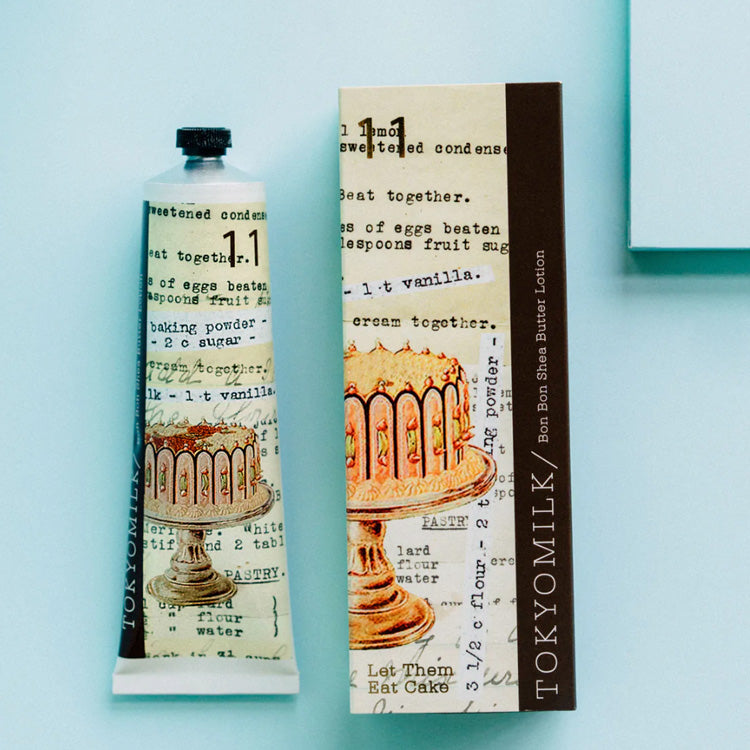 sweetened condens
11
eat together.
s of eggs beaten
espoons fruit sug
baking powder -
- 2 c sugar -
cream together.
lk - 1 t vanilla.
White
nd 2 tabl
PASTRY.
1 cup lard
" flour
" water
TOKYOMILK/ Bon Bon Shea Butter Lotion
11
1 lemon
sweetened condense
Beat together.
es of eggs beaten
lespoons fruit sug
- 1 t vanilla.
cream together.
ng powder -
3 1/2 c flour - 2 t
PASTR
lard
flour
water
Let Them
Eat Cake
TOKYOMILK/ Bon Bon Shea Butter Lotion